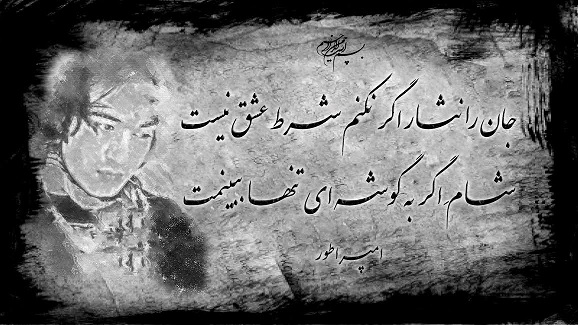 بسم الله الرحمن الرحیم
جان را نثار اگر نکنم شرط عشق نیست
شام اگر به گوشه ای تنها ببینمت
امپراطور